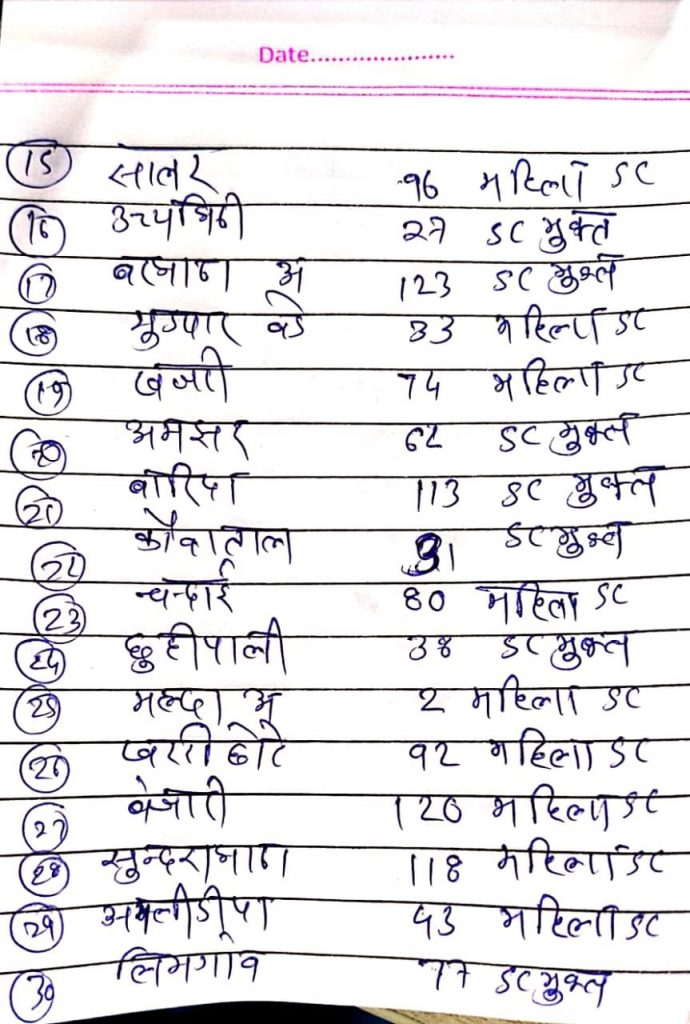 Date.....................
15 सालर 96 महिला SC
16 उच्चभिठी 27 SC मुक्त
17 बरभाठा अ 123 SC मुक्त
18 बडे 33 महिला SC
19 खजरी 74 महिला SC
20 अमझर 62 SC मुक्त
21 बारिदा 113 SC मुक्त
22 कौवाताल 31 SC मुक्त
23 चन्दाई 80 महिला SC
24 छुहीपाली 38 SC मुक्त
25 मल्दा अ 2 महिला SC
26 खर्री छोटे 92 महिला SC
27 बंजारी 120 महिला SC
28 सुन्दराभाठा 118 महिला SC
29 अमलीडीपा 43 महिला SC
30 लिमगांव 77 SC मुक्त